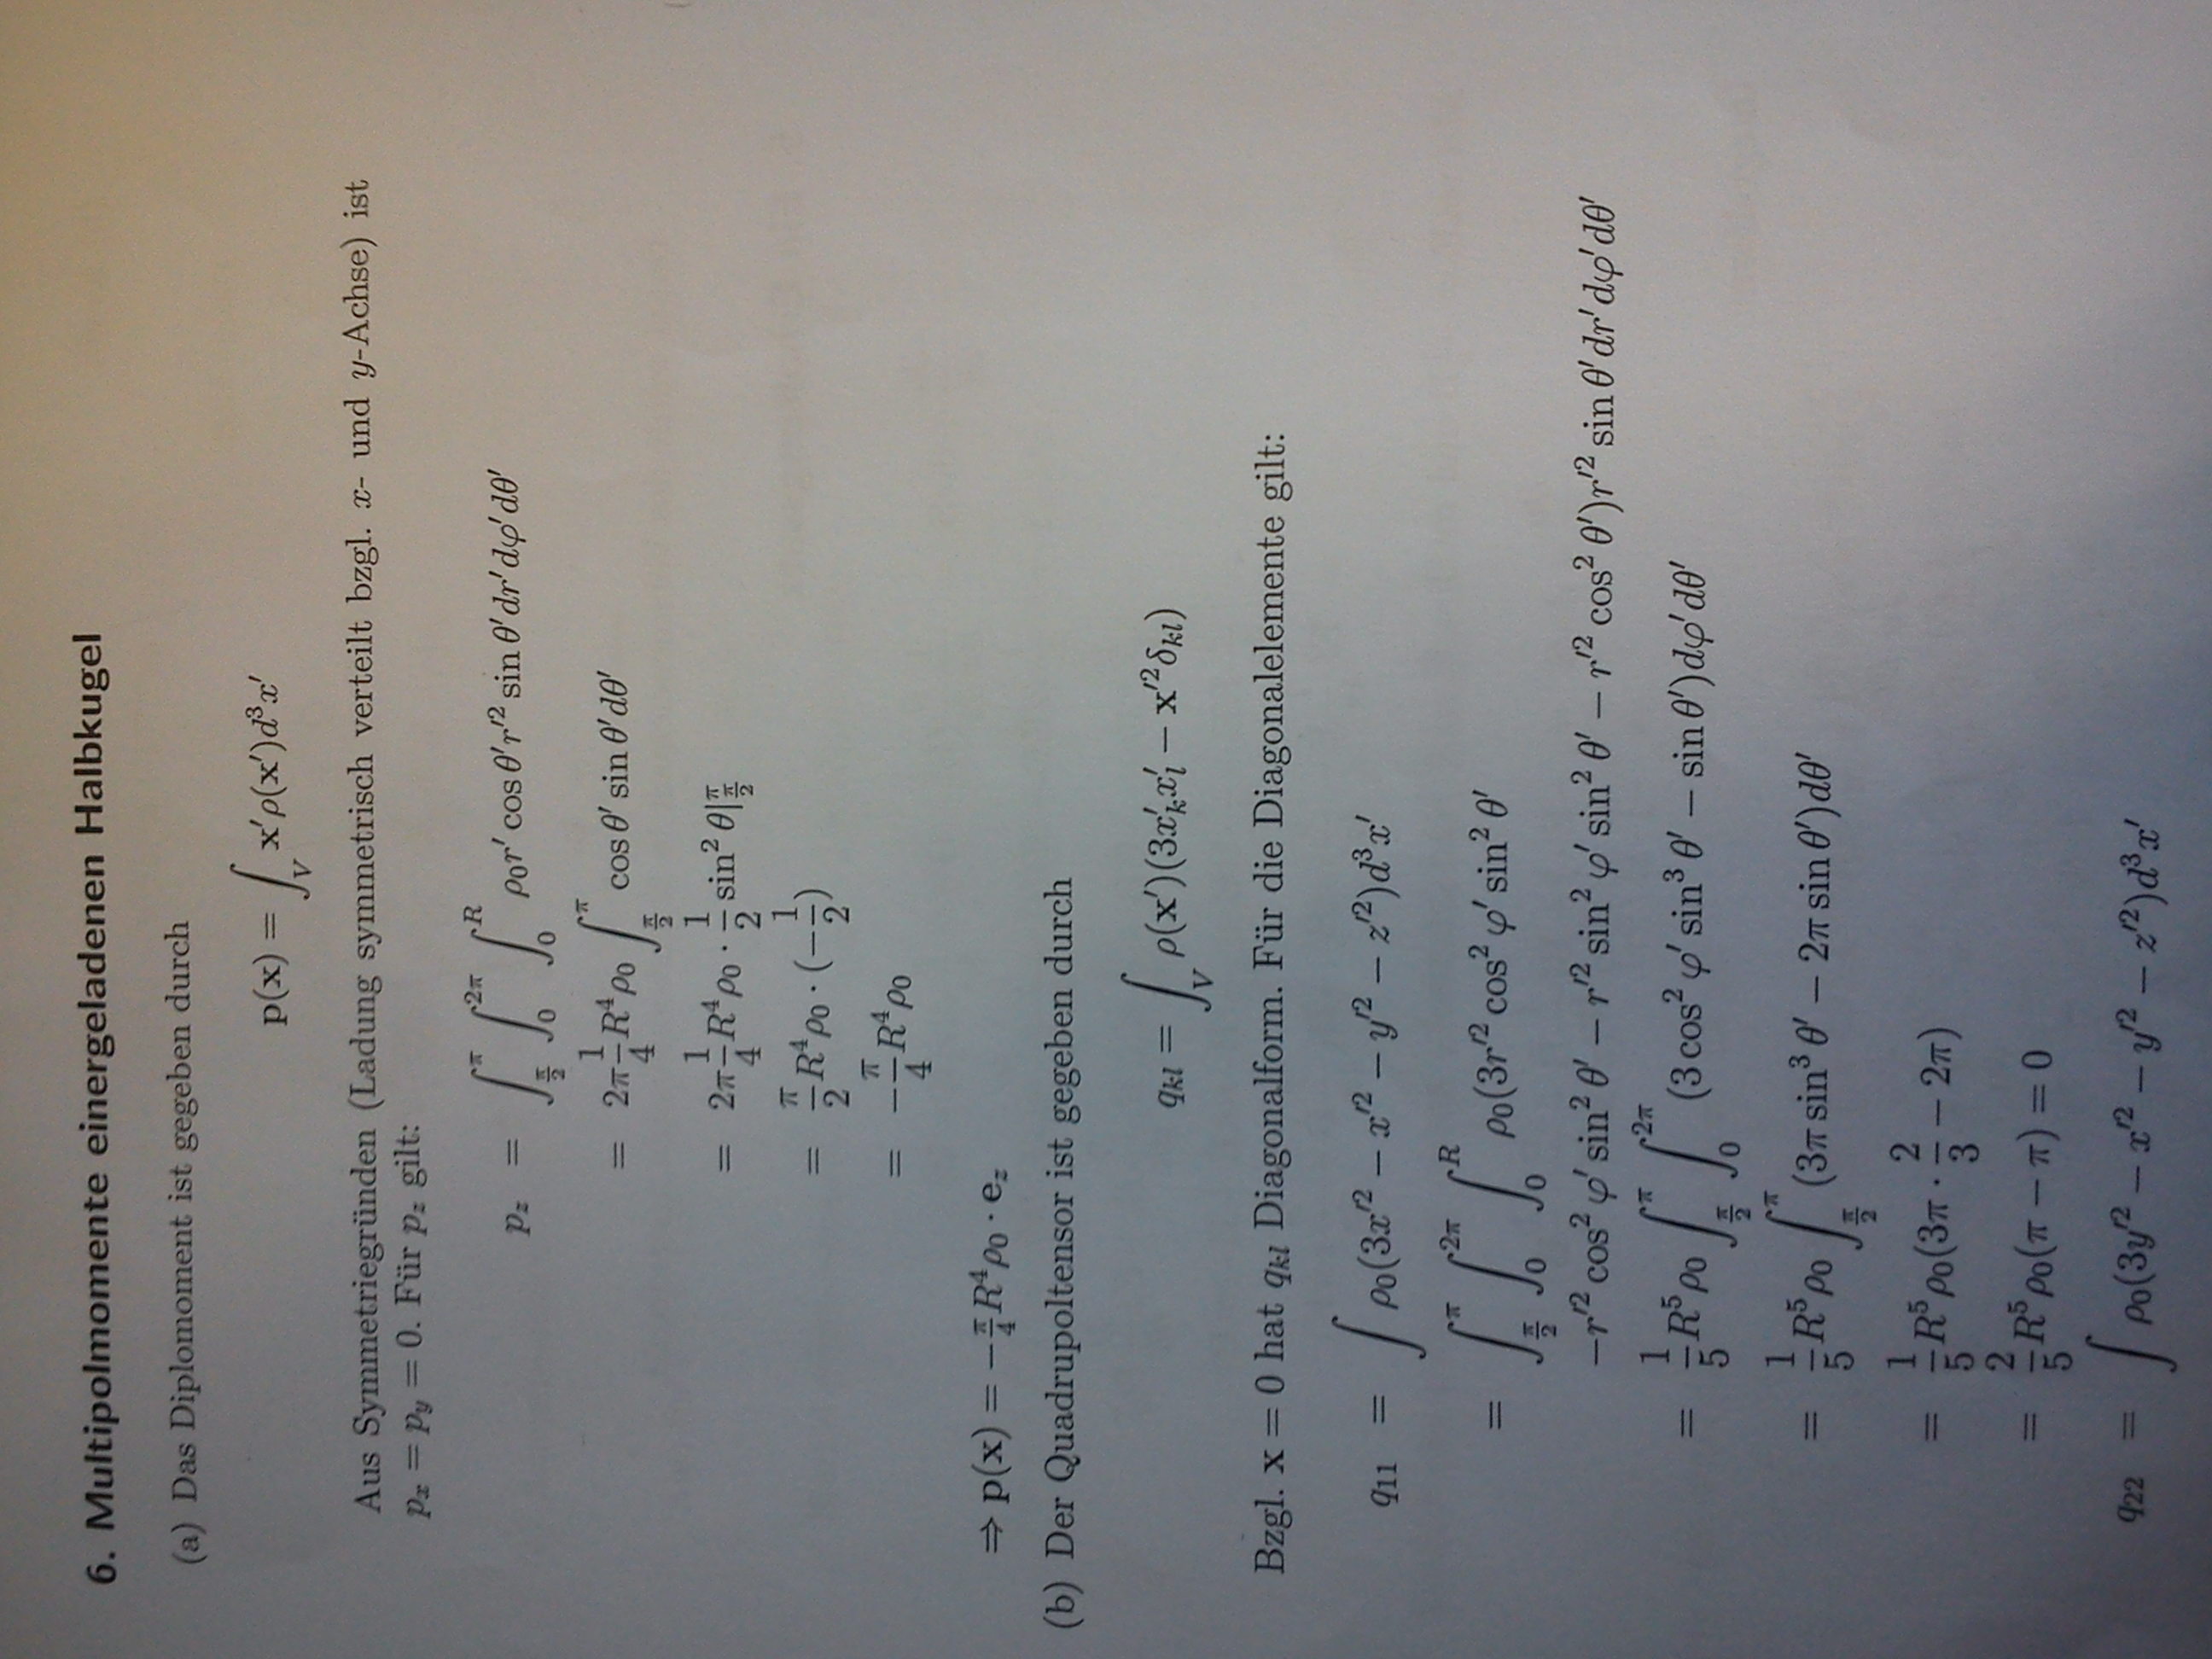 6. Multipolmomente einergeladenen Halbkugel
(a) Das Diplomoment ist gegeben durch
p(x) = ∫_V x′ρ(x′)d³x′
Aus Symmetriegründen (Ladung symmetrisch verteilt bzgl. x- und y-Achse) ist
p_x = p_y = 0. Für p_z gilt:
p_z = ∫_{π/2}^{π} ∫_0^{2π} ∫_0^R ρ₀r′ cos θ′r′² sin θ′dr′dφ′dθ′
= 2π 1/4 R⁴ρ₀ ∫_{π/2}^{π} cos θ′ sin θ′dθ′
= 2π 1/4 R⁴ρ₀ · 1/2 sin² θ|_{π/2}^{π}
= π/2 R⁴ρ₀ · (−1/2)
= −π/4 R⁴ρ₀
⇒ p(x) = −π/4 R⁴ρ₀ · e_z
(b) Der Quadrupoltensor ist gegeben durch
q_{kl} = ∫_V ρ(x′)(3x′_k x′_l − x′²δ_{kl})
Bzgl. x = 0 hat q_{kl} Diagonalform. Für die Diagonalelemente gilt:
q₁₁ = ∫ ρ₀(3x′² − x′² − y′² − z′²)d³x′
= ∫_{π/2}^{π} ∫_0^{2π} ∫_0^R ρ₀(3r′² cos² φ′ sin² θ′
−r′² cos² φ′ sin² θ′ − r′² sin² φ′ sin² θ′ − r′² cos² θ′)r′² sin θ′dr′dφ′dθ′
= 1/5 R⁵ρ₀ ∫_{π/2}^{π} ∫_0^{2π} (3 cos² φ′ sin³ θ′ − sin θ′)dφ′dθ′
= 1/5 R⁵ρ₀ ∫_{π/2}^{π} (3π sin³ θ′ − 2π sin θ′)dθ′
= 1/5 R⁵ρ₀(3π · 2/3 − 2π)
= 2/5 R⁵ρ₀(π − π) = 0
q₂₂ = ∫ ρ₀(3y′² − x′² − y′² − z′²)d³x′